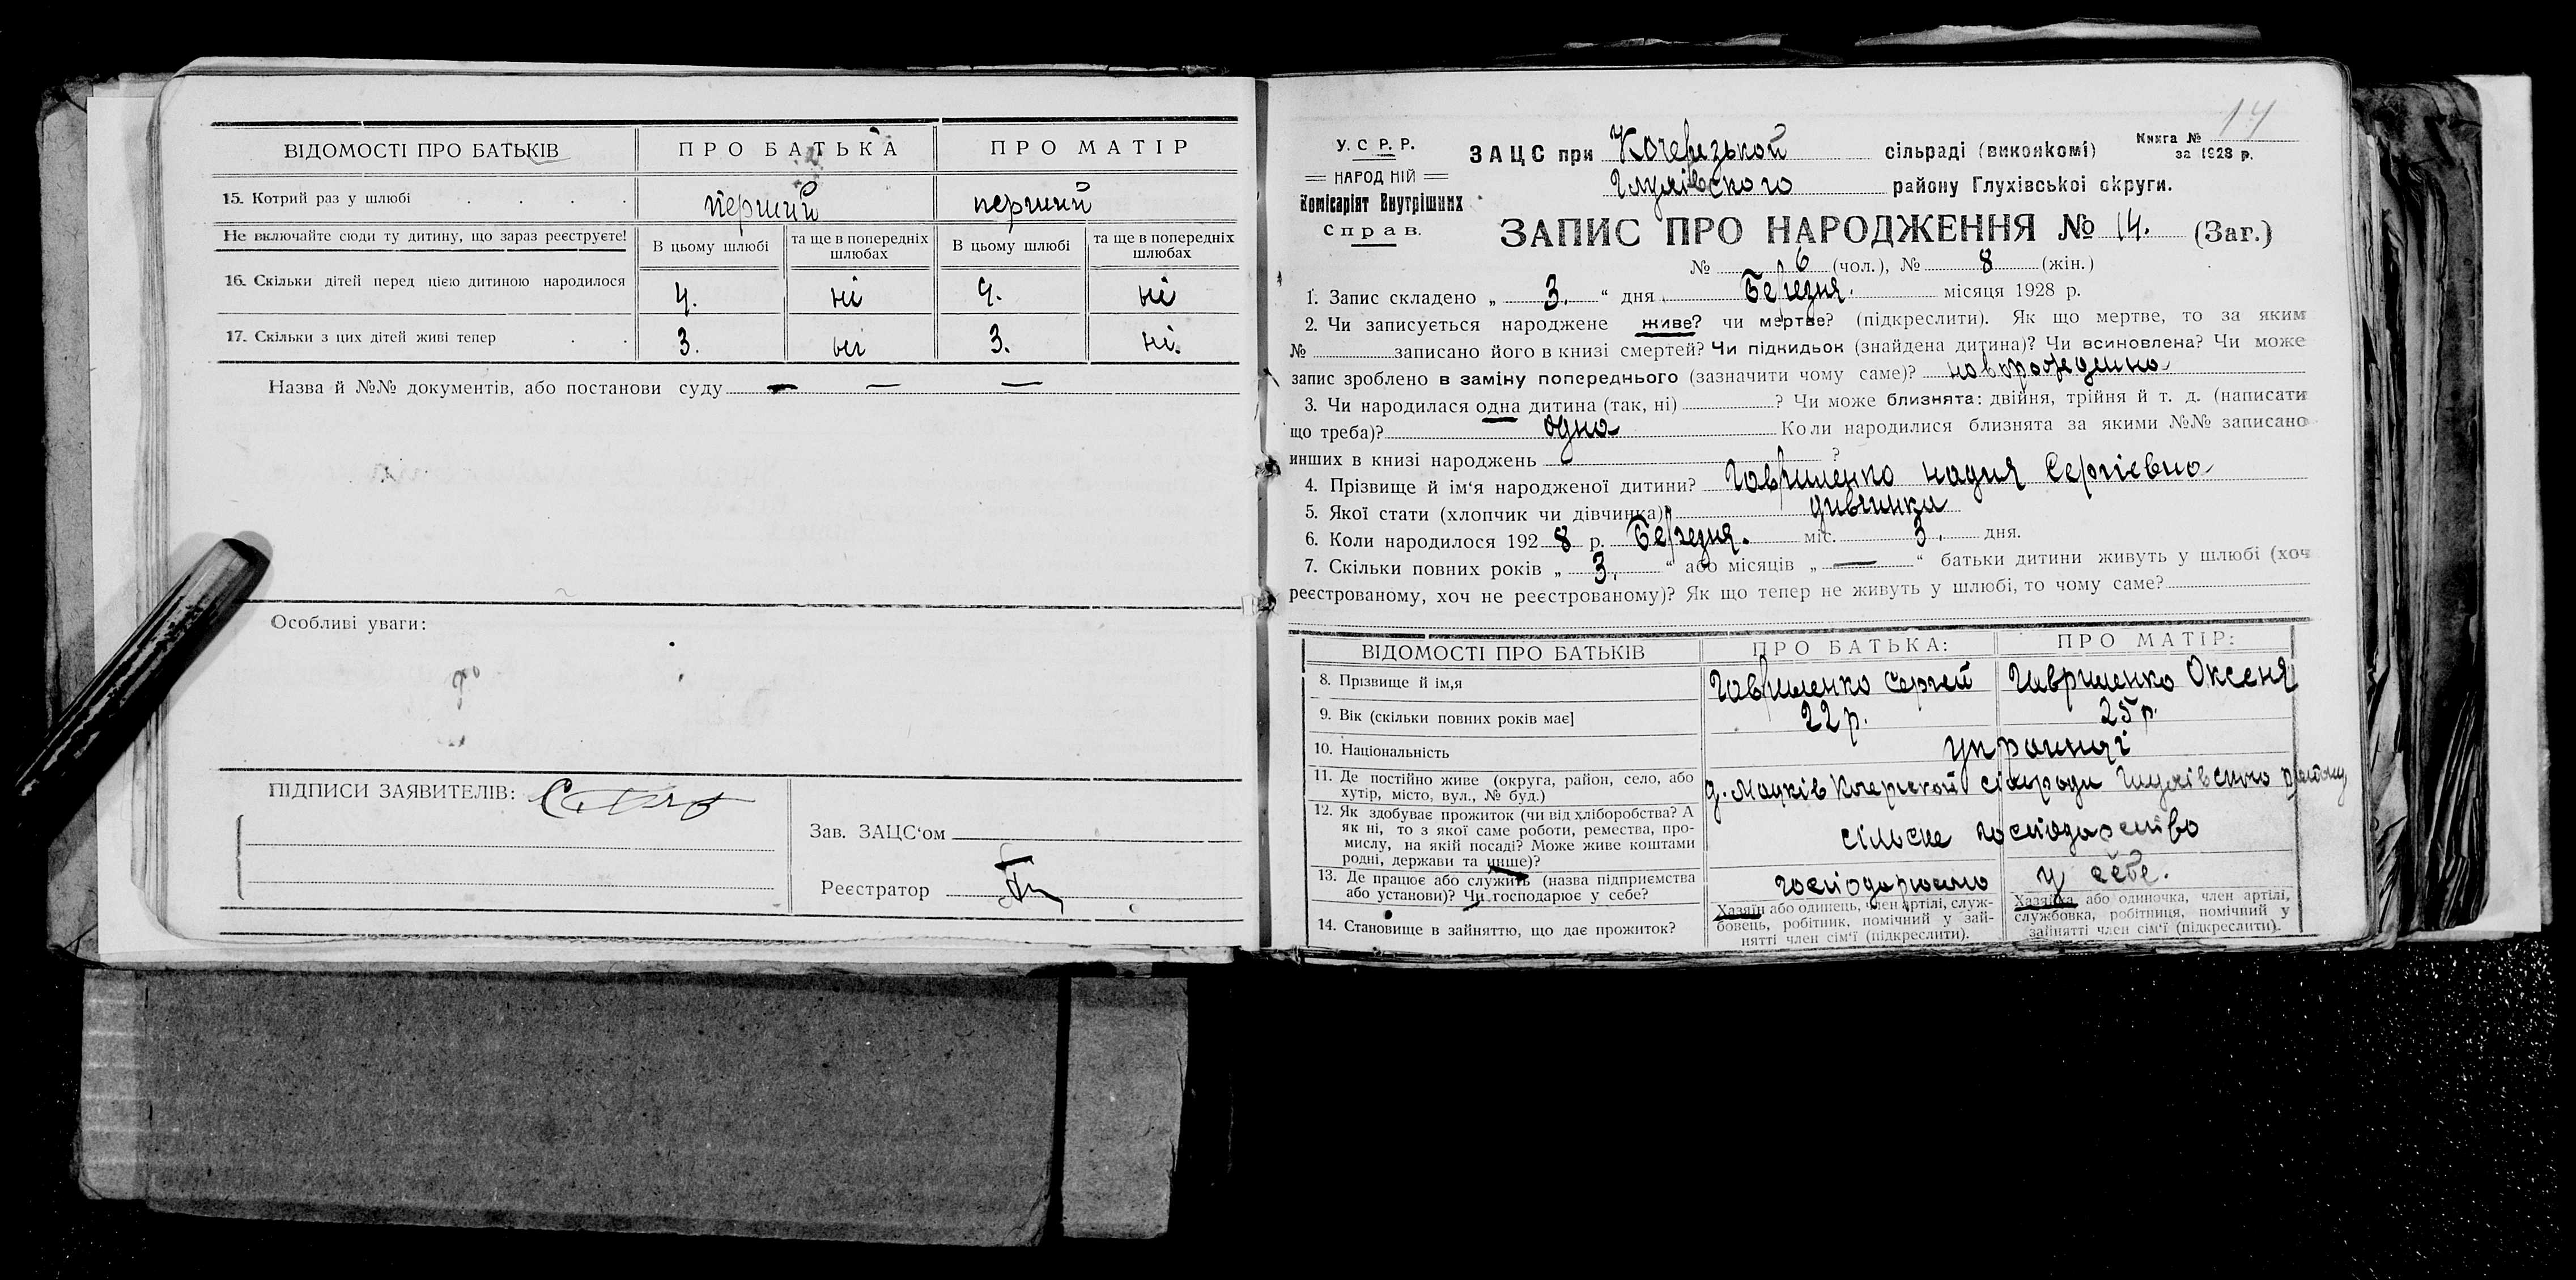 ВІДОМОСТІ ПРО БАТЬКІВ ПРО БАТЬКА ПРО МАТІР
15. Котрий раз у шлюбі перший перший
Не включайте сюди ту дитину, що зараз реєструєте! В цьому шлюбі та ще в попередніх шлюбах В цьому шлюбі та ще в попередніх шлюбах
16. Скільки дітей перед цією дитиною народилося 4. ні 4. ні
17. Скільки з цих дітей живі тепер 3. ні 3. ні.
Назва й №№ документів, або постанови суду — — —
Особливі уваги:
ПІДПИСИ ЗАЯВИТЕЛІВ:
Зав. ЗАЦС'ом
Реєстратор
14
У. С. Р. Р.
НАРОДНІЙ
Комісаріят Внутрішних
Справ.
ЗАЦС при сільраді (виконкомі)
Книга №
за 1928 р.
Глухівського району Глухівської округи.
ЗАПИС ПРО НАРОДЖЕННЯ № 14. (Заг.)
№ 6 (чол.), № 8 (жін.)
1. Запис складено „ 3. “ дня Березня. місяця 1928 р.
2. Чи записується народжене живе? чи мертве? (підкреслити). Як що мертве, то за яким
№ записано його в книзі смертей? Чи підкидьок (знайдена дитина)? Чи всиновлена? Чи може
запис зроблено в заміну попереднього (зазначити чому саме)? новорожденна
3. Чи народилася одна дитина (так, ні) ? Чи може близнята: двійня, трійня й т. д. (написати
що треба)? одна Коли народилися близнята за якими №№ записано
инших в книзі народжень ?
4. Прізвище й ім'я народженої дитини? Гавриленко надия Сергіевна
5. Якої стати (хлопчик чи дівчинка) дивчинка
6. Коли народилося 1928 р. Березня. міс. 3. дня.
7. Скільки повних років „ 3. “ або місяців „ — “ батьки дитини живуть у шлюбі (хоч
реєстрованому, хоч не реєстрованому)? Як що тепер не живуть у шлюбі, то чому саме?
ВІДОМОСТІ ПРО БАТЬКІВ ПРО БАТЬКА: ПРО МАТІР:
8. Прізвище й ім,я Гавриленко Сергей Гавриленко Оксеня
9. Вік (скільки повних років має] 22 р. 25 р.
10. Національність
11. Де постійно живе (округа, район, село, або
хутір, місто, вул., № буд.) Глухівского району
12. Як здобуває прожиток (чи від хліборобства? А
як ні, то з якої саме роботи, ремества, про-
мислу, на якій посаді? Може живе коштами
родні, держави та инше)? сільске господарство
13. Де працює або служить (назва підприємства
або установи)? Чи господарює у себе? у себе.
14. Становище в зайняттю, що дає прожиток?
Хазяїн або одинець, член артілі, служ-
бовець, робітник, помічний у зай-
нятті член сім'ї (підкреслити).
Хазяйка або одиночка, член артілі,
службовка, робітниця, помічний у
зайнятті член сім'ї (підкреслити).